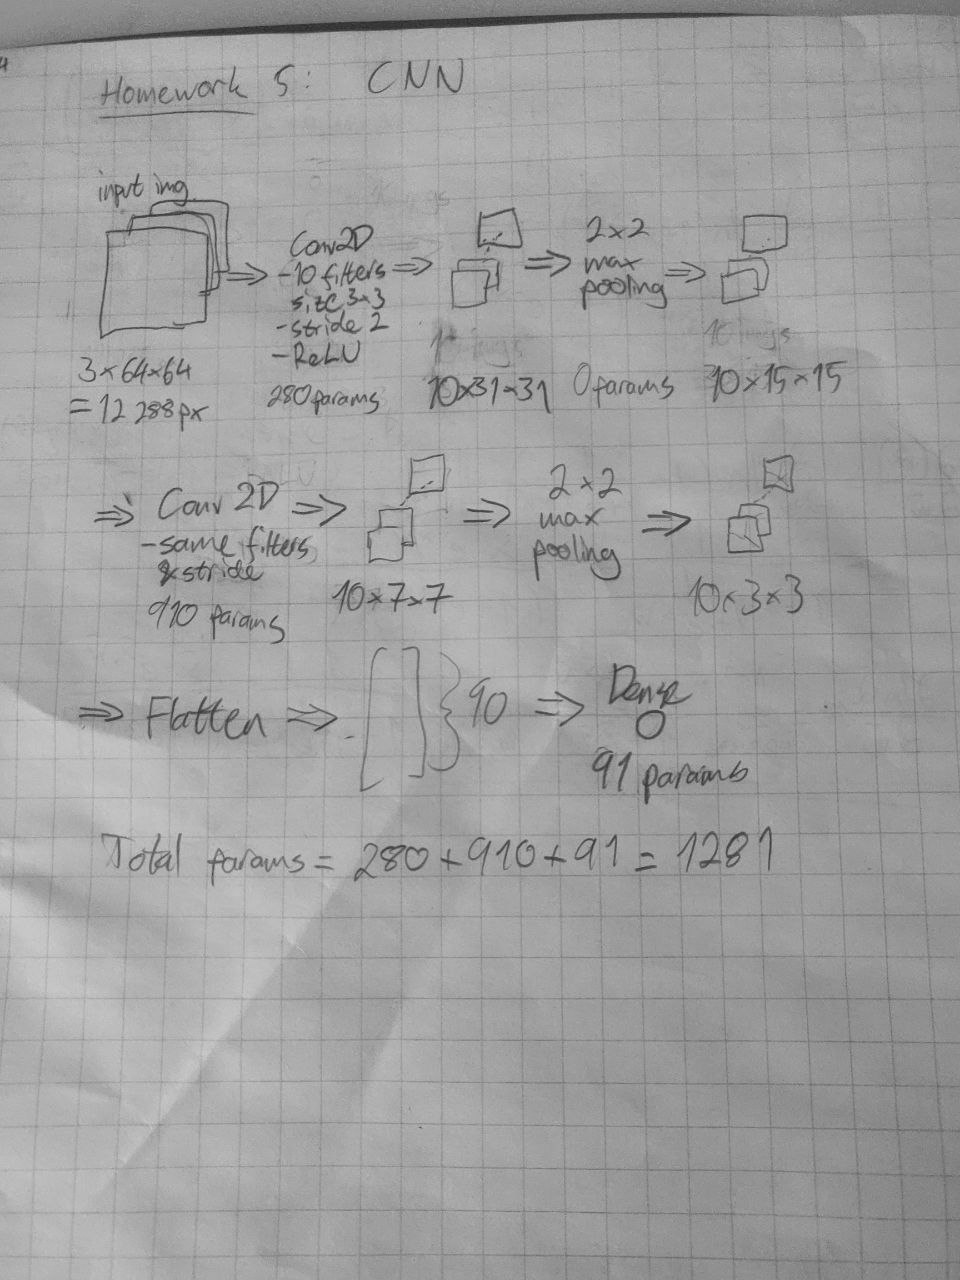 Homework 5: CNN
input img
3×64×64
= 12 288 px
⇒
Conv2D
-10 filters
size 3×3
- stride 2
- ReLU
280 params
⇒
10×31×31
⇒
2×2
max
pooling
0 params
⇒
10×15×15
⇒ Conv 2D
- same filters
& stride
910 params
⇒
10×7×7
⇒
2×2
max
pooling
⇒
10×3×3
⇒ Flatten ⇒ [ ] } 90 ⇒ Dense
91 params
Total params = 280+910+91 = 1281